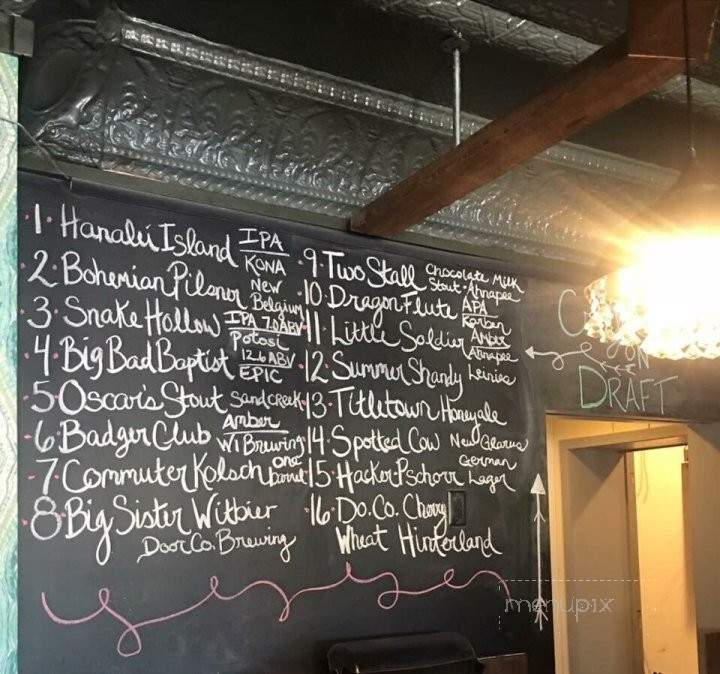 1. Hanalei Island IPA
KONA
2. Bohemian Pilsner New
Belgium
3. Snake Hollow IPA 7.0 ABV
Potosi
4. Big Bad Baptist 12.6 ABV
EPIC
5. Oscar's Stout Sand creek
6. Badger Club Amber
WI Brewing
7. Commuter Kolsch one
barrel
8. Big Sister Witbier
Door Co. Brewing
9. Two Stall Chocolate Milk
Stout - Ahnapee
10. Dragon Flute APA
Karben
11. Little Soldier Amber
Ahnapee
12. Summer Shandy Leinies
13. Titletown Honeyale
14. Spotted Cow New Glarus
15. Hacker Pschorr German
Lager
16. Do. Co. Cherry
Wheat Hinterland
ON
DRAFT
menupix